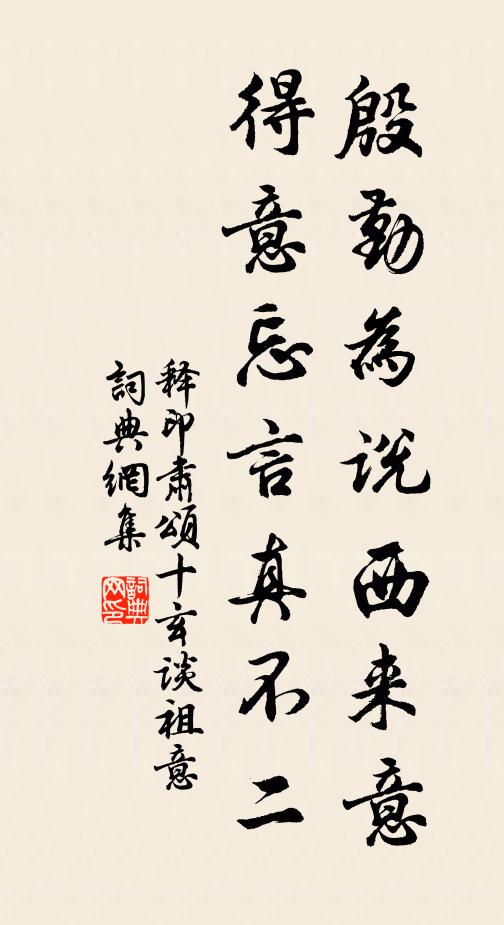 殷勤為説西来意
得意忘言真不二
释印肅頌十玄談祖意
詞典網集
詞典
网印